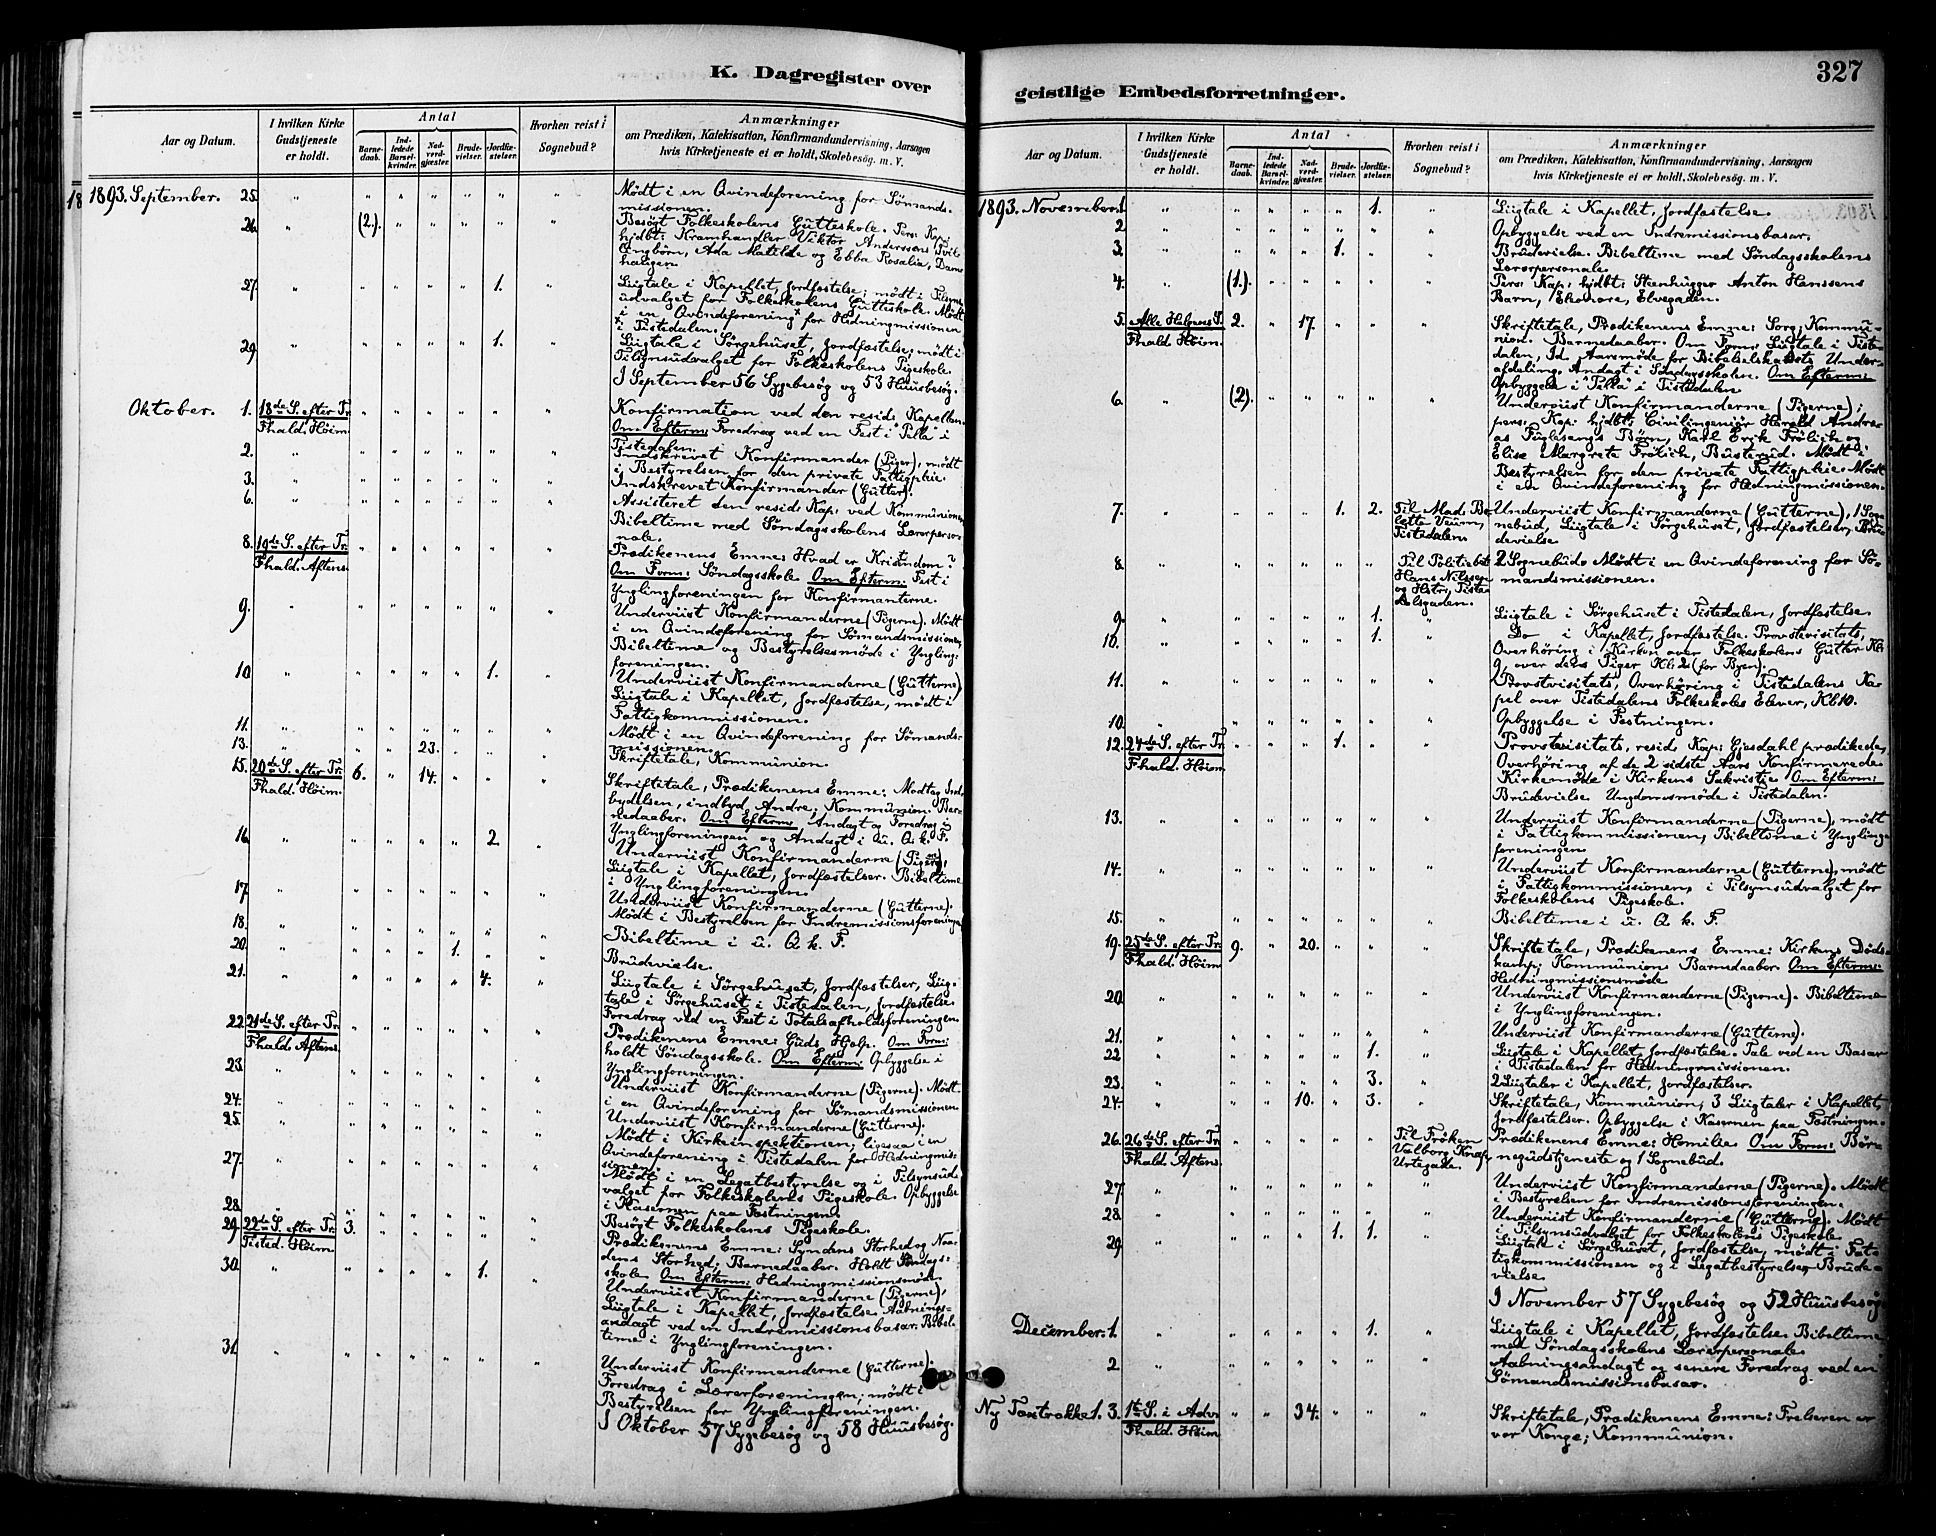 K. Dagregister over
Aar og Datum.
I hvilken Kirke
Gudstjeneste
er holdt.
Antal
Barne-
daab.
Ind-
ledede
Barsel-
kvinder.
Nad-
verd-
gjester.
Brude-
vielser.
Jordfæ-
stelser.
Hvorhen reist i
Sognebud?
Anmærkninger
om Prædiken, Katekisation, Konfirmandundervisning, Aarsagen
hvis Kirketjeneste ei er holdt, Skolebesøg. m. V.
18
1893. September. 25. Mødt i en Qvindeforening for Sømands-
missionen.
26. (2.) Besøgt Folkeskolens Gutteskole. Pers: Kap:
hjdbt: Kramhandler Viktor Anderssons Tvil-
lingbørn, Ada Matilde og Ebba Rosalia, Dams-
haugen.
27. 1. Liigtale i Kapellet, Jordfæstelse; mødt i Tilsyns-
udvalget for Folkeskolens Gutteskole. Mødt
i en Qvindeforening x for Hedningmissionen
x i Tistedalen.
29. 1. Liigtale i Sørgehuset, Jordfæstelse; mødt i
Tilsynsudvalget for Folkeskolens Pigeskole.
I September 56 Sygebesøg og 53 Huusbesøg.
Oktober. 1. 18de S. efter Tr: Konfirmation ved den resid: Kapellan.
Fhald. Høim. Om Efterm: Foredrag ved en Fest i "Pella" i
Tistedalen.
2. Indskrevet Konfirmander (Piger), mødt
i Bestyrelsen for den private Fattigpleie.
3. Indskrevet Konfirmander (Gutter).
6. Assisteret den resid: Kap: ved Kommunionen
Bibeltime med Søndagsskolens Lærerperso-
nale.
8. 19de S. efter Tr: Prædikenens Emne: Hvad er Kristendom?
Fhald. Aftens. Om Form: Søndagsskole. Om Efterm: Fest i
Ynglingforeningen for Konfirmanterne.
9. Underviist Konfirmanderne (Pigerne). Mødt
i en Qvindeforening for Sømandsmissionen,
Bibeltime og Bestyrelsesmøde i Yngling-
foreningen.
10. 1. Underviist Konfirmanderne (Gutterne)
Liigtale i Kapellet, Jordfæstelse, mødt i
Fattigkommissionen.
11. Mødt i en Qvindeforening for Sømands-
missionen.
13. 23. Skriftetale, Kommunion.
15. 20de S. efter Tr: 6. 14. Skriftetale, Prædikenens Emne: Modtag Ind-
Fhald. Høim. bydelsen, indbyd Andre; Kommunion. Bar-
nedaaber. Om Efterm: Andagt og Foredrag i
Ynglingforeningen og Andagt i u. Q. k. F.
16. 2 Underviist Konfirmanderne (Pigerne),
Liigtale i Kapellet, Jordfæstelser. Bibeltime
i Ynglingforeningen.
17. Underviist Konfirmanderne (Gutterne).
Mødt i Bestyrelsen for Indremissionsforeningen
18. Bibeltime i u. Q. k. F.
20. 1. Brudevielse.
21. 4. Liigtale i Sørgehuset, Jordfæstelser, Liig-
tale i Sørgehuset i Tistedalen, Jordfæstelse.
Foredrag ved en Fest i Totalsafholdsforeningen.
22. 21de S. efter Tr: Prædikenens Emne: Guds Hjælp. Om Form:
Fhald. Aftens. holdt Søndagsskole. Om Efterm: Opbyggelse i
Ynglingforeningen.
23. Underviist Konfirmanderne (Pigerne). Mødt
i en Qvindeforening for Sømandsmissionen
24. Underviist Konfirmanderne (Gutterne).
25. Mødt i Kirkeinspektionen, ligesaa i en
Qvindeforening i Tistedalen for Hedningmis-
sionen.
27. Mødt i en Legatbestyrelse og i Tilsynsud-
valget for Folkeskolens Pigeskole. Opbyggelse
i Kasernen paa Fæstningen.
28. Besøgt Folkeskolens Pigeskole.
29. 22de S. efter Tr: 3. Prædikenens Emne: Syndens Storhed og Naa-
Tisted. Høim. dens Storhed; Barnedaaber. Holdt Søndags-
skole. Om Efterm: Hedningmissionsmøde.
30. 1. Underviist Konfirmanderne (Pigerne),
Liigtale i Kapellet, Jordfæstelse. Aabnings-
andagt ved en Indremissionsbasar. Bibel-
time i Ynglingforeningen.
31. Underviist Konfirmanderne (Gutterne).
Foredrag i Lærerforeningen; mødt i
Bestyrelsen for Ynglingforeningen.
I Oktober 57 Sygebesøg og 58 Huusbesøg.
geistlige Embedsforretninger.
327
Aar og Datum.
I hvilken Kirke
Gudstjeneste
er holdt.
Antal
Barne-
daab.
Ind-
ledede
Barsel-
kvinder.
Nad-
verd-
gjester.
Brude-
vielser.
Jordfæ-
stelser.
Hvorhen reist i
Sognebud?
Anmærkninger
om Prædiken, Katekisation, Konfirmandundervisning, Aarsagen
hvis Kirketjeneste ei er holdt, Skolebesøg. m. V.
1893. November. 1. 1. Liigtale i Kapellet, Jordfæstelse.
2 Opbyggelse ved en Indremissionsbasar.
3. 1. Brudevielse. Bibeltime med Søndagsskolens
Lærerpersonale.
4. (1.) Pers: Kap: hjdbt: Steenhugger Anton Hanssens
Barn, Elvegaden.
5. Alle Helgens S. 2. 17. Skriftetale, Prædikenens Emne: Sorg; Kommu-
Fhald. Høim. nion. Barnedaaber. Om Form: Liigtale i Tiste-
dalen, Id. Aarsmøde for Bibelselskabets Under-
afdeling. Andagt i Søndagsskolen. Om Efterm:
Opbyggelse i "Pella" i Tistedalen.
6. (2). Underviist Konfirmanderne (Pigerne);
pers: Kap: hjdbt: Civilingeniør Harald Andre-
as Fuglesangs Børn, Karl Erik Frölich og
Elise Margrete Frölich, Busterud. Mødt i
Bestyrelsen for den private Fattigpleie. Mødt
i en Qvindeforening for Hedningmissionen.
7. 1. 2. Til Mad: Bo- Underviist Konfirmanderne (Gutterne), 1 Sog-
lette Veum, nebud, Liigtale i Sørgehuset, Jordfæstelser, Bru-
Tistedalen devielse.
8. Til Politibet: 2 Sognebud. Mødt i en Qvindeforening for Sø-
Hans Nilssen mandsmissionen.
og Hstr:, Tiste-
dalsgaden.
9. 1. Liigtale i Sørgehuset i Tistedalen, Jordfæstelse.
10. 1. Do i Kapellet, Jordfæstelse. Provstevisitats,
Overhøring i Kirken over Folkeskolens Gutter Kl:
9, over dens Piger Kl: 2 (for Byen).
11. Provstvisitats, Overhøring i Tistedalens Ka-
pel over Tistedalens Folkeskoles Elever, Kl. 10.
10. Opbyggelse i Fæstningen.
12. 24de S. efter Tr: 1. Provstevisitats, resid: Kap: Gjesdahl prædikede,
Fhald. Høim. Overhøring af de 2 sidste Aars Konfirmerede
Kirkemøde i Kirkens Sakristie. Om Efterm:
Brudevielse. Ungdomsmøde i Tistedalen.
13. Underviist Konfirmanderne (Pigerne), mødt
i Fattigkommissionen, Bibeltime i Yngling-
foreningen.
14. Underviist Konfirmanderne (Gutterne), mødt
i Fattigkommissionen, i Tilsynsudvalget for
Folkeskolens Pigeskole.
15. Bibeltime i u. Q. k. F.
19. 25de S. efter Tr: 9. 20. Skriftetale, Prædikenens Emne: Kirkens Døds-
Fhald. Høim. kamp; Kommunion. Barnedaaber. Om Efterm:
Hedningmissionsmøde
20. Underviist Konfirmanderne (Pigerne). Bibeltime
i Ynglingforeningen.
21. Underviist Konfirmanderne (Gutterne).
22 1. Liigtale i Kapellet, Jordfæstelse. Tale ved en Basar
i Tistedalen for Hedningmissionen.
23. 3. 2 Liigtaler i Kapellet, Jordfæstelser.
24. 10. 3. Skriftetale, Kommunion, 3 Liigtaler i Kapellet,
Jordfæstelser. Opbyggelse i Kasernen paa Fæstningen.
26. 26de S. efter Tr: Til Frøken Prædikenens Emne: Homilie. Om Form: Bør-
Fhald. Aftens. Valborg negudstjeneste og 1 Sognebud.
Urtegade.
27. Underviist Konfirmanderne (Pigerne). Mødt
i Bestyrelsen for Indremissionsforeningen.
28. Underviist Konfirmanderne (Gutterne). Mødt
i Tilsynsudvalget for Folkeskolens Pigeskole.
29. 1. 1. Liigtale i Sørgehuset, Jordfæstelse, mødt i Fat-
tigkommissionen og i Legatbestyrelse. Brude-
vielse.
I November 57 Sygebesøg og 52 Huusbesøg.
December. 1. 1. Liigtale i Kapellet, Jordfæstelse. Bibeltime
med Søndagsskolens Lærerpersonale.
2 Aabningsandagt og senere Foredrag ved en
Sømandsmissionsbasar.
Ny Textrække 1. 3. 1ste S. i Adv: 34. Skriftetale, Prædikenens Emne: Frelseren er
Fhald. Høim vor Konge; Kommunion.